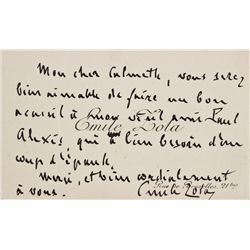 Mon cher Calmette, vous serez
bien aimable de faire un bon
accueil à mon vieil ami Paul
Emile Zola
Alexis, qui a bien besoin d'un
coup d'épaule.
Rue de Bruxelles, 21 bis
Merci, et bien cordialement
à vous.
Emile Zola